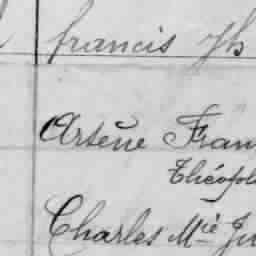 francis Jh
Arsène Fran
Théoph
Charles Mie Ju